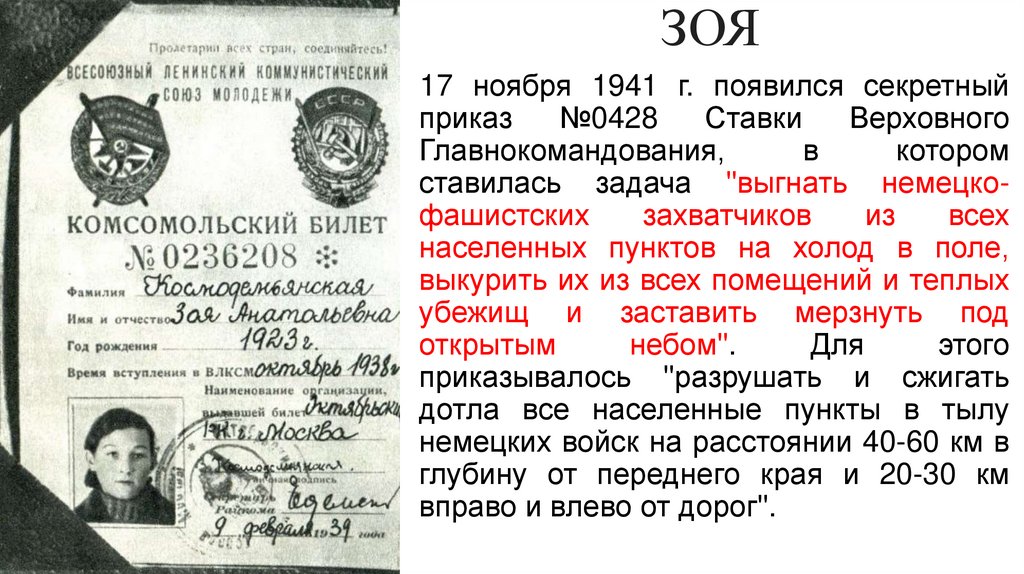 ЗОЯ
Пролетарии всех стран, соединяйтесь!
ВСЕСОЮЗНЫЙ ЛЕНИНСКИЙ КОММУНИСТИЧЕСКИЙ
СОЮЗ МОЛОДЕЖИ
СССР
КОМСОМОЛЬСКИЙ БИЛЕТ
№ 0236208
Фамилия Космодемьянская
Имя и отчество Зоя Анатольевна
Год рождения 1923 г.
Время вступления в ВЛКСМ октябрь 1938 г
Наименование организации,
выдавшей билет Октябрьский
г. Москва
Космодемянская.
личная подпись
Секретарь
Райкома
9 февраля 1939 года
17 ноября 1941 г. появился секретный
приказ №0428 Ставки Верховного
Главнокомандования, в котором
ставилась задача "выгнать немецко-
фашистских захватчиков из всех
населенных пунктов на холод в поле,
выкурить их из всех помещений и теплых
убежищ и заставить мерзнуть под
открытым небом". Для этого
приказывалось "разрушать и сжигать
дотла все населенные пункты в тылу
немецких войск на расстоянии 40-60 км в
глубину от переднего края и 20-30 км
вправо и влево от дорог".